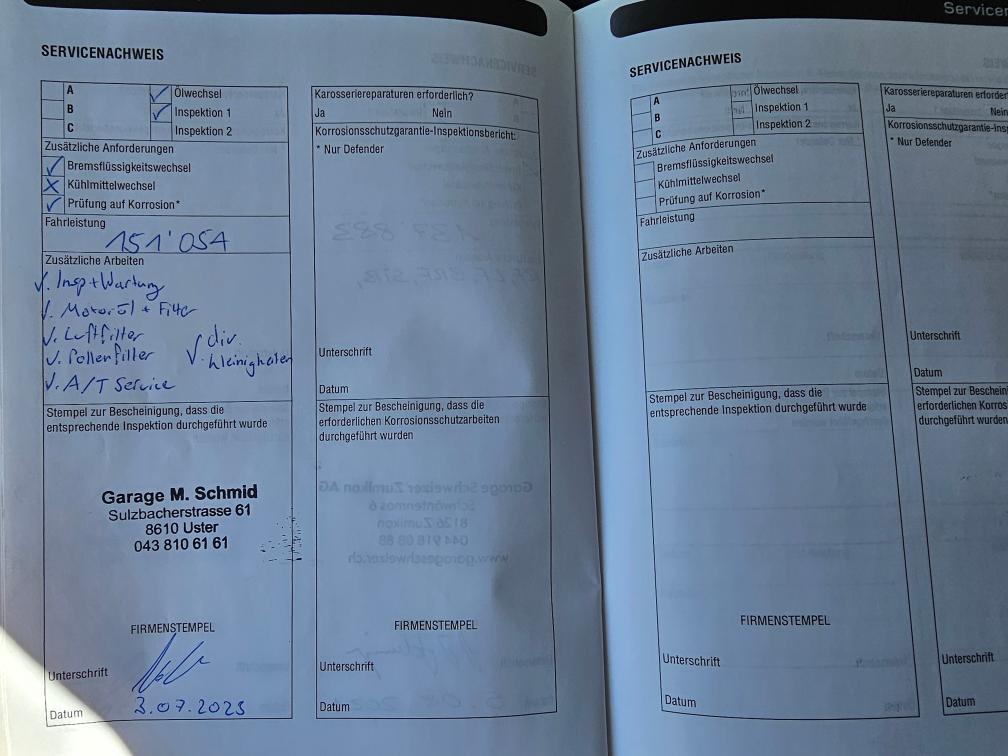 SERVICENACHWEIS
A
B
C
✓ Ölwechsel
✓ Inspektion 1
Inspektion 2
Zusätzliche Anforderungen
✓ Bremsflüssigkeitswechsel
X Kühlmittelwechsel
✓ Prüfung auf Korrosion*
Fahrleistung
151'054
Zusätzliche Arbeiten
√. Insp + Wartung
√. Motoröl + Filter
√. Luftfilter
√. Pollenfilter
√. A/T Service
√ div. Kleinigkeiten
Stempel zur Bescheinigung, dass die
entsprechende Inspektion durchgeführt wurde
Garage M. Schmid
Sulzbacherstrasse 61
8610 Uster
043 810 61 61
FIRMENSTEMPEL
Unterschrift
Datum 3.07.2023
Karosseriereparaturen erforderlich?
Ja Nein
Korrosionsschutzgarantie-Inspektionsbericht:
* Nur Defender
Unterschrift
Datum
Stempel zur Bescheinigung, dass die
erforderlichen Korrosionsschutzarbeiten
durchgeführt wurden
FIRMENSTEMPEL
Unterschrift
Datum
Servicen
SERVICENACHWEIS
A
B
C
Ölwechsel
Inspektion 1
Inspektion 2
Zusätzliche Anforderungen
Bremsflüssigkeitswechsel
Kühlmittelwechsel
Prüfung auf Korrosion*
Fahrleistung
Zusätzliche Arbeiten
Stempel zur Bescheinigung, dass die
entsprechende Inspektion durchgeführt wurde
FIRMENSTEMPEL
Unterschrift
Datum
Karosseriereparaturen erforder
Ja Nein
Korrosionsschutzgarantie-Ins
* Nur Defender
Unterschrift
Datum
Stempel zur Bescheini
erforderlichen Korros
durchgeführt wurden
Unterschrift
Datum